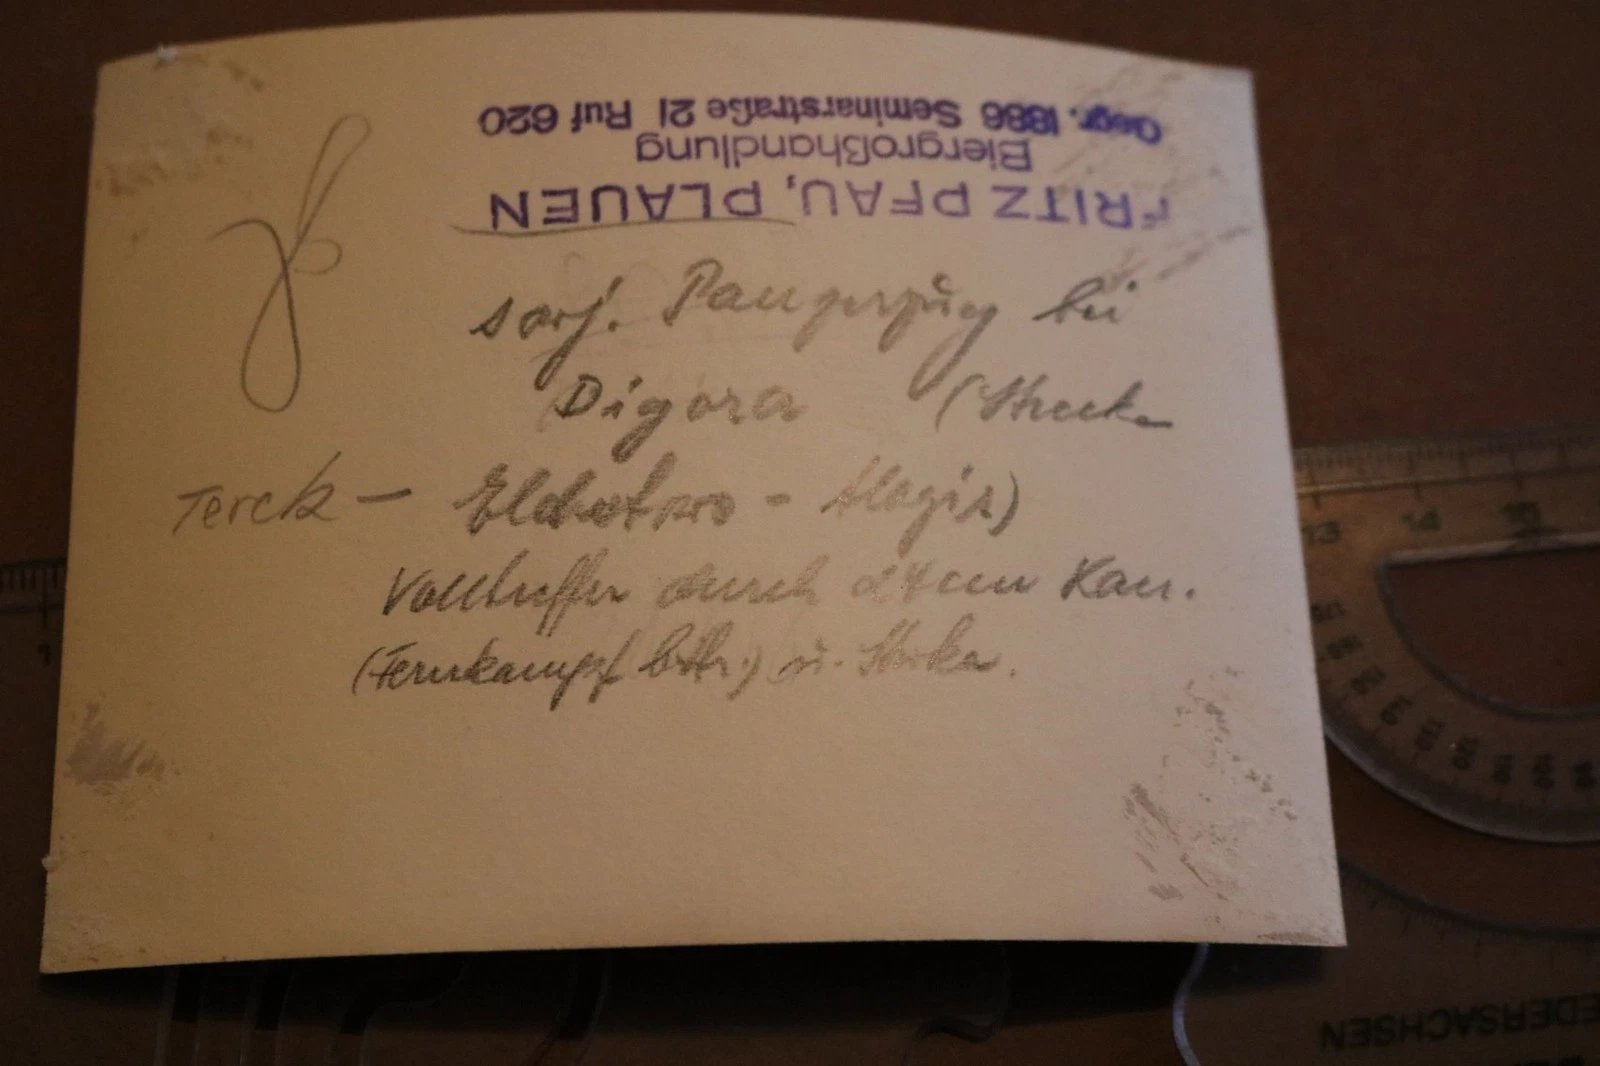 FRITZ PFAU, PLAUEN
Biergroßhandlung
Gegr. 1886 Seminarstraße 21 Ruf 620
sowj. Panzerzug bei
Digora (Strecke
Terek – Elchotowo - Alagir)
Volltreffer durch 24cm Kan.
(Fernkampf bttr.) u. Stuka.
13 14 15
1
EDERSACHSEN